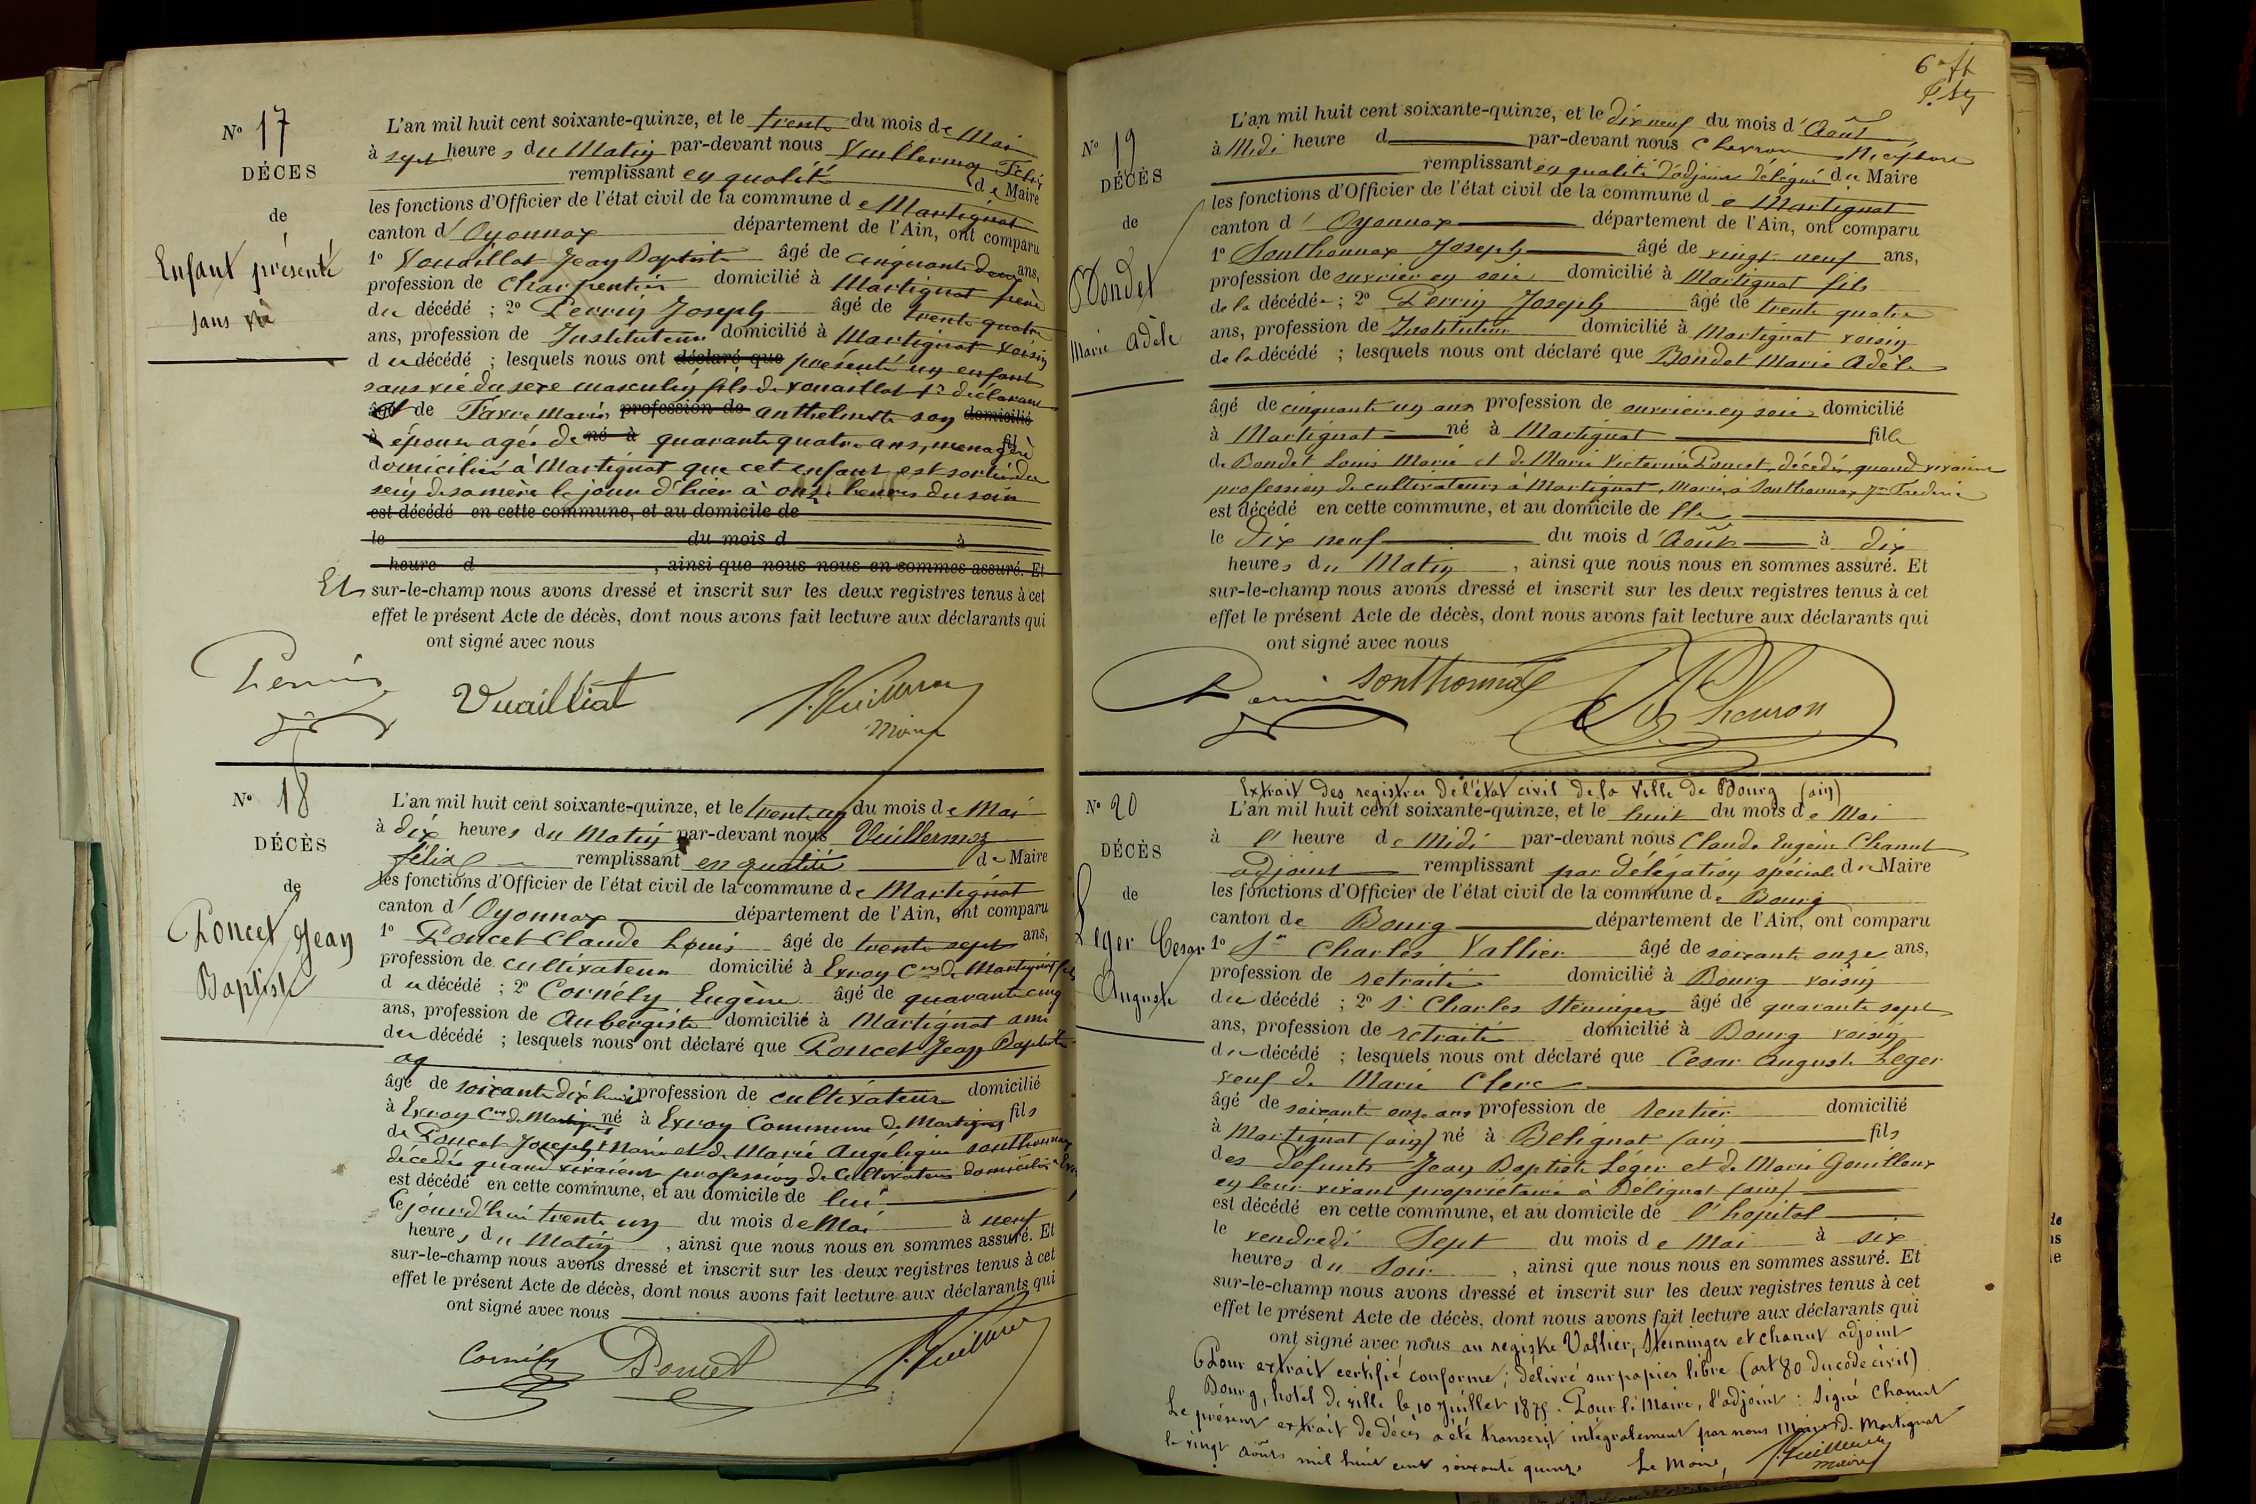 N° 17
DÉCES
de
Enfant présenté
sans vie
L'an mil huit cent soixante-quinze, et le trente du mois de Mai
à sept heures du Matin par-devant nous Vuillermoz Félix
remplissant en qualité de Maire
les fonctions d'Officier de l'état civil de la commune de Martignat
canton d'Oyonnax département de l'Ain, ont comparu
1° Vouaillat Jean Baptiste âgé de cinquante deux ans,
profession de Charpentier domicilié à Martignat père
du décédé ; 2° Perrin Joseph âgé de trente quatre
ans, profession de Instituteur domicilié à Martignat voisin
du décédé ; lesquels nous ont déclaré que présenté un enfant
sans vie du sexe masculin fils de vouaillat 1er déclarant
âgé et de Favre Marie profession de anthelmette son domicilié
à épouse agée de né à quarante quatre ans, menagère fil
domiciliée à Martignat que cet enfant est sorti du
sein de sa mère le jour d'hier à onze heures du soir
est décédé en cette commune, et au domicile de
le du mois d à
heure d , ainsi que nous nous en sommes assuré. Et
Et sur-le-champ nous avons dressé et inscrit sur les deux registres tenus à cet
effet le présent Acte de décès, dont nous avons fait lecture aux déclarants qui
ont signé avec nous
Perrin Vuailliat F. Vuillermoz
Maire
N° 18
DÉCÈS
de
Poncet Jean
Baptiste
L'an mil huit cent soixante-quinze, et le trente un du mois de Mai
à dix heures du Matin par-devant nous Vuillermoz
félix remplissant en qualité de Maire
les fonctions d'Officier de l'état civil de la commune de Martignat
canton d'Oyonnax département de l'Ain, ont comparu
1° Poncet Claude Louis âgé de trente sept ans,
profession de cultivateur domicilié à Evron Cne de Martignat fils
du décédé ; 2° Cornély Eugène âgé de quarante cinq
ans, profession de Aubergiste domicilié à Martignat ami
du décédé ; lesquels nous ont déclaré que Poncet Jean Baptiste
ag
âgé de soixante dix huit profession de cultivateur domicilié
à Evron Cne de Martignat né à Evron Commune de Martignat fils
de Poncet Joseph Marie et de Marie Angélique sonthonnax
décédés quand vivaient profession de Cultivateurs domiciliés à
est décédé en cette commune, et au domicile de lui
le jourd'hui trente un du mois de Mai à neuf
heures du Matin , ainsi que nous nous en sommes assuré. Et
sur-le-champ nous avons dressé et inscrit sur les deux registres tenus à cet
effet le présent Acte de décès, dont nous avons fait lecture aux déclarants qui
ont signé avec nous
Cornély Poncet F. Vuillermoz
6e ft
N° 19
DÉCÈS
de
Bondet
Marie Adèle
L'an mil huit cent soixante-quinze, et le dix neuf du mois d'Août
à Midi heure d par-devant nous Chevron Nicéphore
remplissant en qualité d'adjoint délégué du Maire
les fonctions d'Officier de l'état civil de la commune de Martignat
canton d'Oyonnax département de l'Ain, ont comparu
1° Sonthonnax Joseph âgé de vingt neuf ans,
profession de ouvrier en soie domicilié à Martignat fils
de la décédée ; 2° Perrin Joseph âgé de trente quatre
ans, profession de Instituteur domicilié à Martignat voisin
de la décédé ; lesquels nous ont déclaré que Bondet Marie Adèle
âgé de cinquante un ans profession de ouvrière en soie domicilié
à Martignat né à Martignat fille
de Bondet Louis Marie et de Marie Victorine Poncet, décédés, quand vivaient
profession de cultivateurs à Martignat, Mariée à Sonthonnax Jn Frederic
est décédé en cette commune, et au domicile de elle
le dix neuf du mois d'Août à dix
heures du Matin , ainsi que nous nous en sommes assuré. Et
sur-le-champ nous avons dressé et inscrit sur les deux registres tenus à cet
effet le présent Acte de décès, dont nous avons fait lecture aux déclarants qui
ont signé avec nous
Perrin Sonthonnax N. Chevron
Extrait des registres de l'état civil de la ville de Bourg (ain)
N° 20
DÉCÈS
de
Leger Cesar
Auguste
L'an mil huit cent soixante-quinze, et le huit du mois de Mai
à l' heure de Midi par-devant nous Claude Eugène Chanut
adjoint remplissant par délégation spéciale du Maire
les fonctions d'Officier de l'état civil de la commune de Bourg
canton de Bourg département de l'Ain, ont comparu
1° Sr Charles Vallier âgé de soixante onze ans,
profession de retraité domicilié à Bourg voisin
du décédé ; 2° Sr Charles Steininger âgé de quarante sept
ans, profession de retraité domicilié à Bourg voisin
du décédé ; lesquels nous ont déclaré que Cesar Auguste Leger
veuf de Marie Clerc
âgé de soixante onze ans profession de rentier domicilié
à Martignat (ain) né à Bélignat (ain) fils
des défunts Jean Baptiste Léger et de Marie Gouilloux
en leur vivant propriétaires à Bélignat (ain)
est décédé en cette commune, et au domicile de l'hopital
le vendredi Sept du mois de Mai à six
heures du soir , ainsi que nous nous en sommes assuré. Et
sur-le-champ nous avons dressé et inscrit sur les deux registres tenus à cet
effet le présent Acte de décès, dont nous avons fait lecture aux déclarants qui
ont signé avec nous au registre Vallier, Steininger et Chanut adjoint
Pour extrait certifié conforme ; délivré sur papier libre (art 80 du code civil)
Bourg, hotel de ville le 10 Juillet 1875. Pour le Maire, l'adjoint : signé Chanut
Le présent extrait de décès a été transcrit intégralement par nous Maire de Martignat
le vingt Août mil huit cent soixante quinze Le Maire, F. Vuillermoz
maire